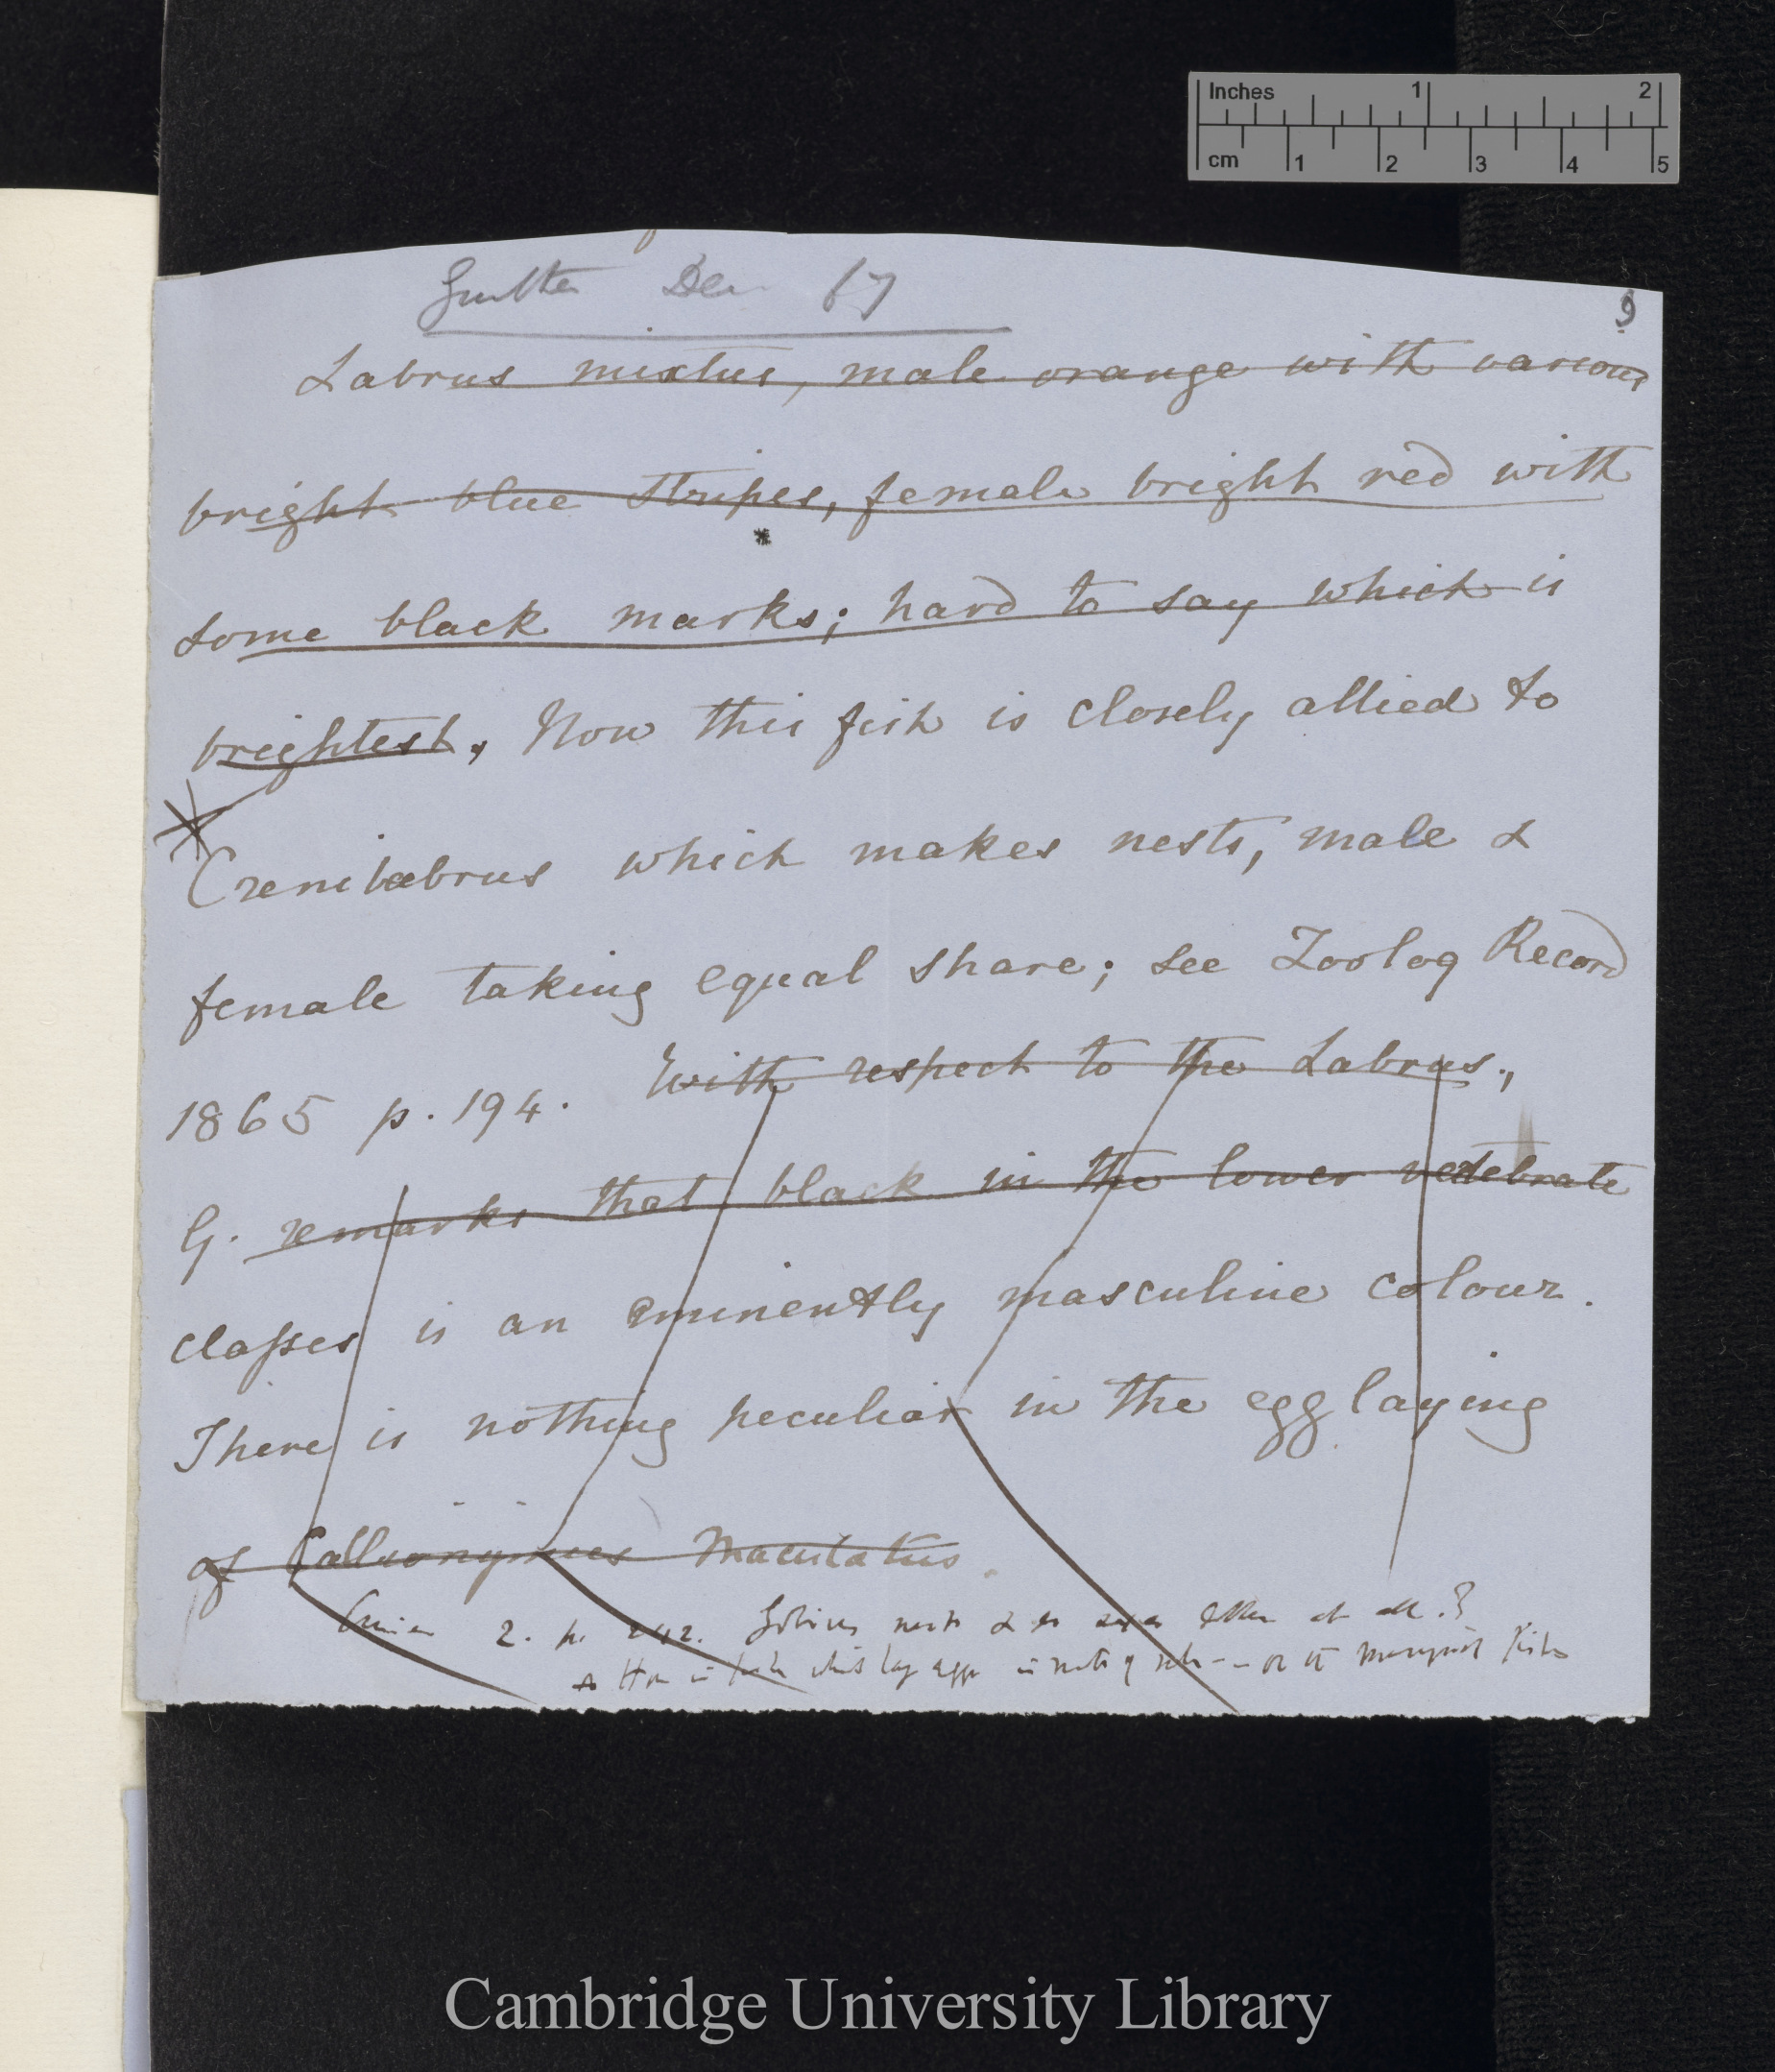 Inches 1 2
cm 1 2 3 4 5
Gunther Dec 67
9
Labrus mixtus, male orange with various
bright blue stripes, female bright red with
some black marks; hard to say which is
brightest. Now this fish is closely allied to
Crenilabrus which makes nests, male &
female taking equal share; see Zoolog Record
1865 p. 194. With respect to the Labrus.,
G. remarks that black in the lower vertebrate
classes is an eminently masculine colour.
There is nothing peculiar in the egg laying
of Callionymus Maculatus.
Cuvier 2. p. 242. Gobius nests & at all.?
How is fish which lay eggs in nests of or of Marsupial Fish
Cambridge University Library